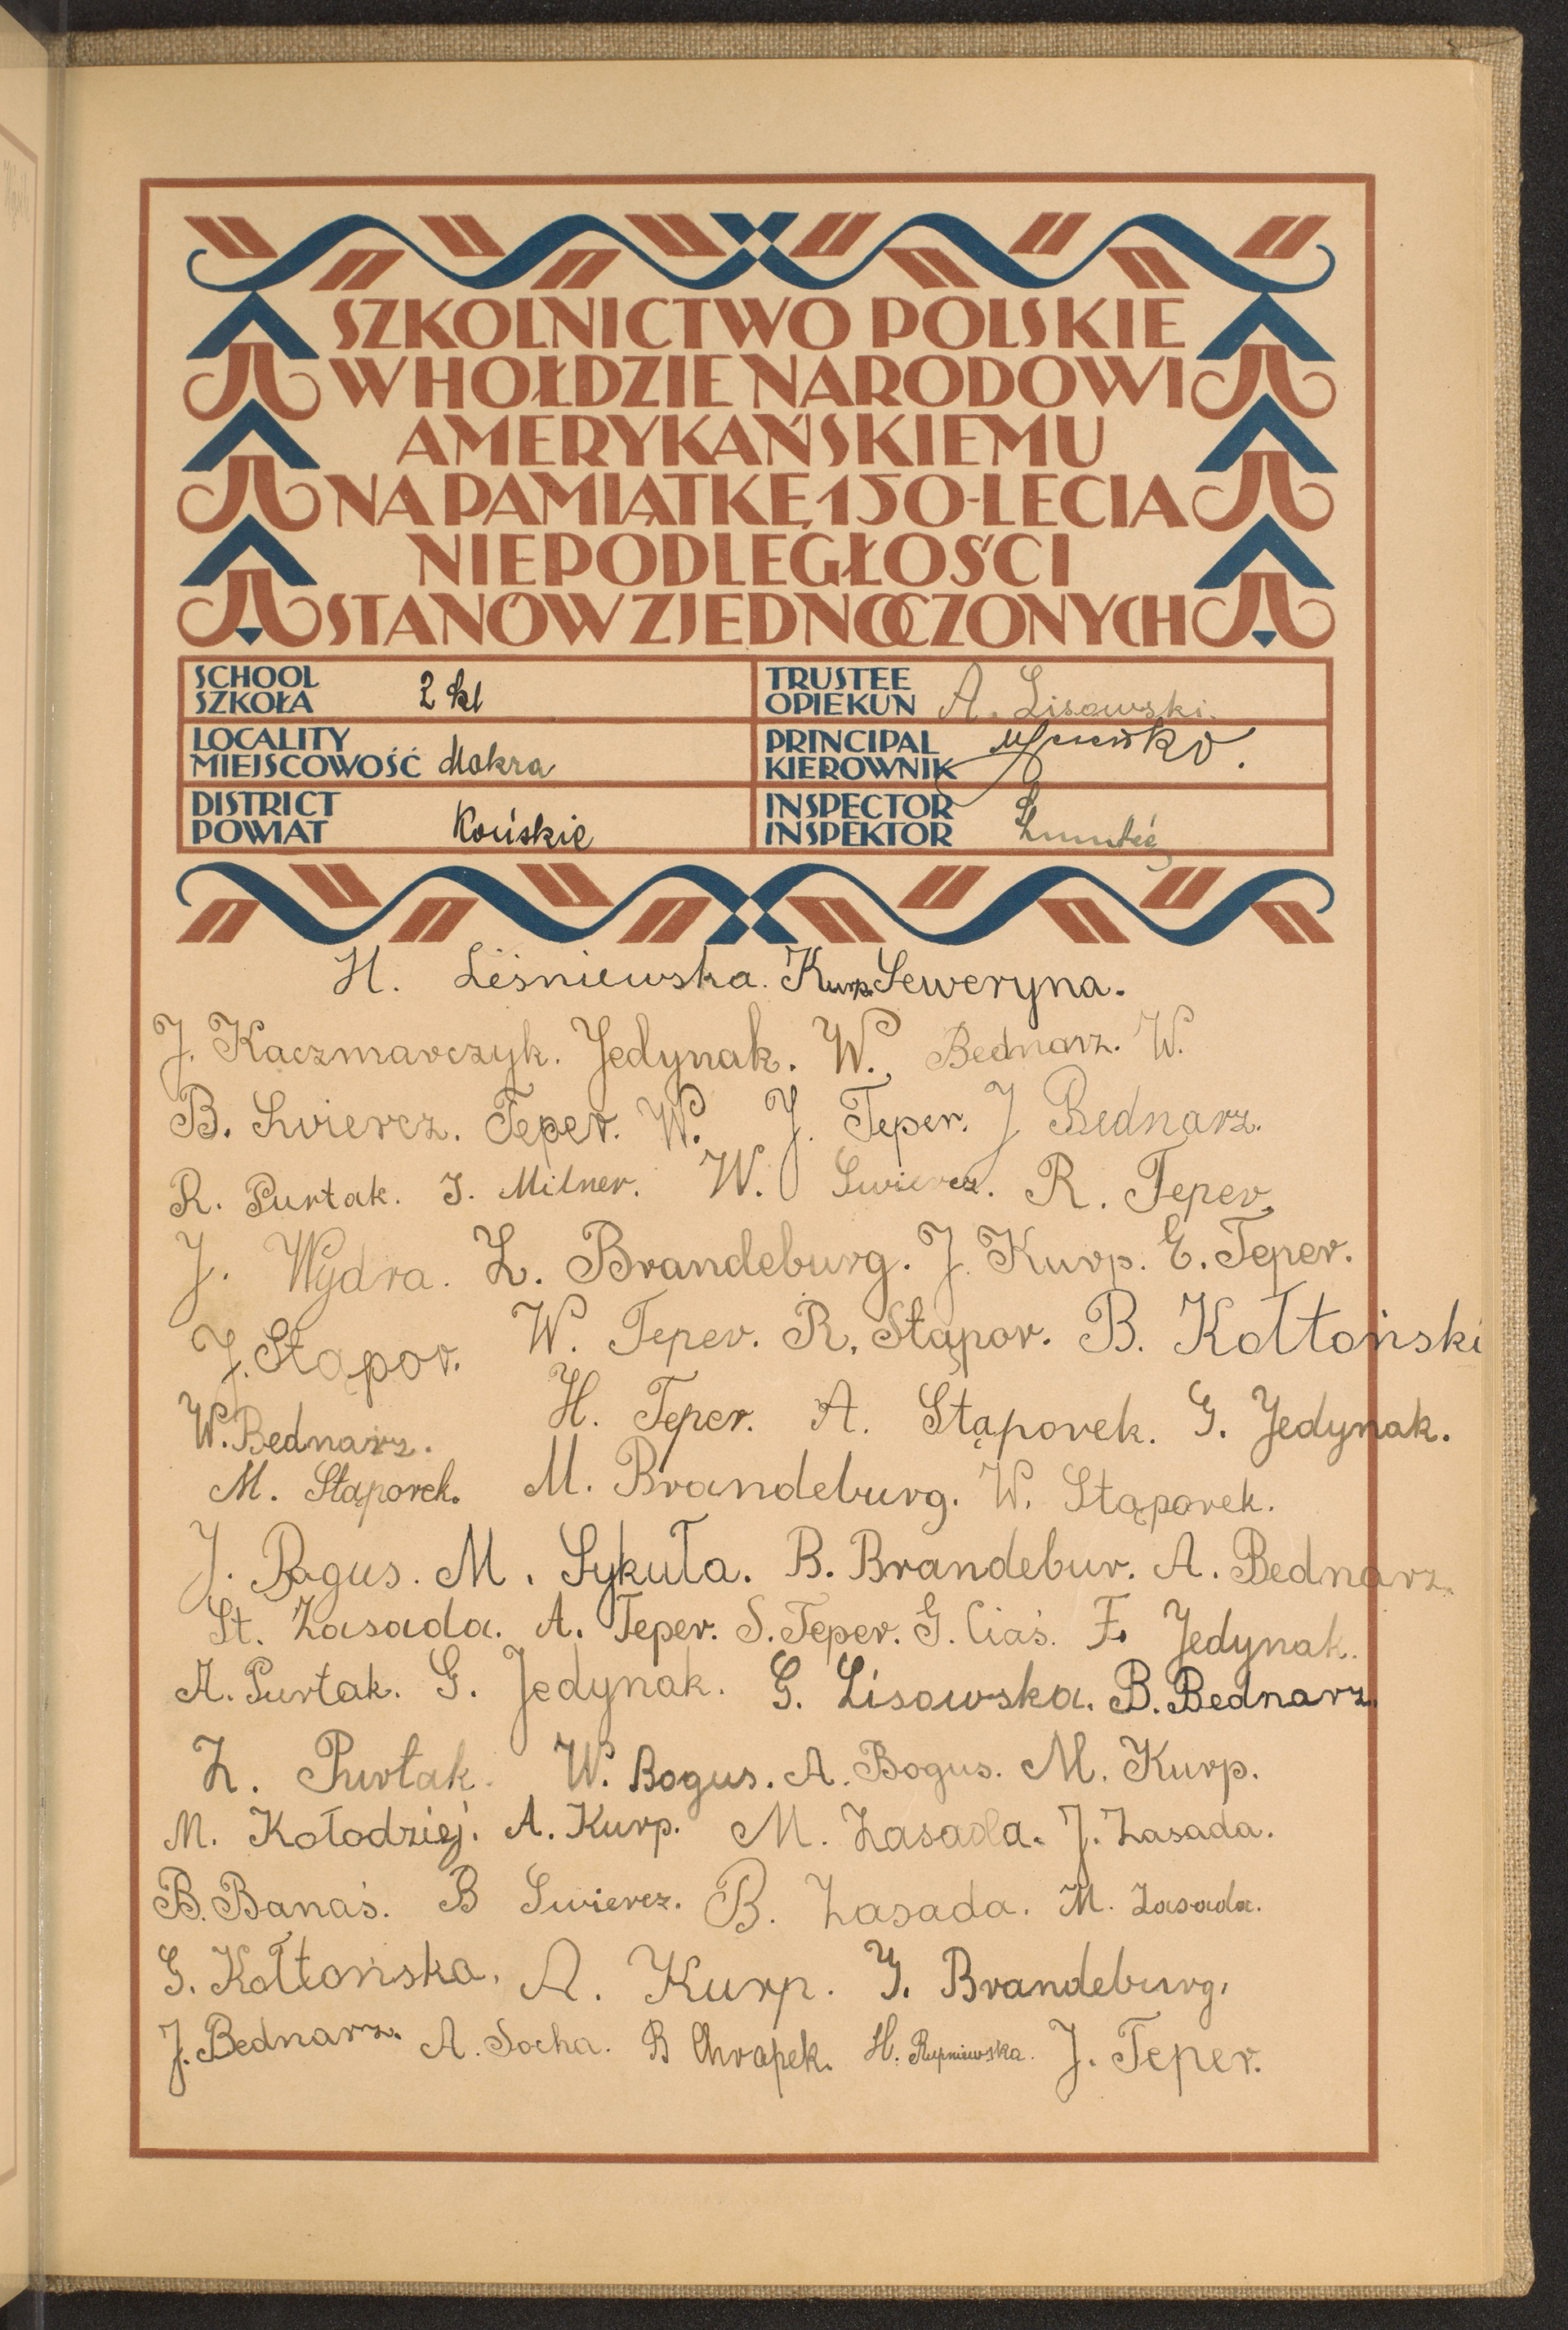 SZKOLNICTWO POLSKIE
W HOŁDZIE NARODOWI
AMERYKAŃSKIEMU
NA PAMIĄTKĘ 150-LECIA
NIEPODLEGŁOŚCI
STANÓW ZJEDNOCZONYCH
SCHOOL
SZKOŁA 2 kl
TRUSTEE
OPIEKUN A. Lisowski.
LOCALITY
MIEJSCOWOŚĆ Mokra
PRINCIPAL
KIEROWNIK
DISTRICT
POWIAT Końskie
INSPECTOR
INSPEKTOR
H. Leśniewska. Kurp. Seweryna.
J. Kaczmarczyk. Jedynak. W. Bednarz. W.
B. Swiercz. Teper. W. J. Teper. J Bednarz.
R. Purtak. J. Milner. W. Swiercz. R. Teper.
J. Wydra. Z. Brandeburg. J. Kurp. E. Teper.
J. Stąpor. W. Teper. R. Stąpor. B. Kołtoński
W. Bednarz. H. Teper. A. Stąporek. G. Jedynak.
M. Stąporek. M. Brandeburg. W. Stąporek.
J. Bogus. M. Sykuła. B. Brandebur. A. Bednarz.
St. Zasada. A. Teper. S. Teper. G. Ciaś. F. Jedynak.
A. Purtak. G. Jedynak. G. Lisowska. B. Bednarz.
Z. Purtak. W. Bogus. A. Bogus. M. Kurp.
M. Kołodziej. A. Kurp. M. Zasada. J. Zasada.
B. Banaś. B Swiercz. B. Zasada. M. Zasada.
G. Kołtońska. A. Kurp. G. Brandeburg.
J. Bednarz. A. Socha. B Chrapek. H. Rupniewska. J. Teper.